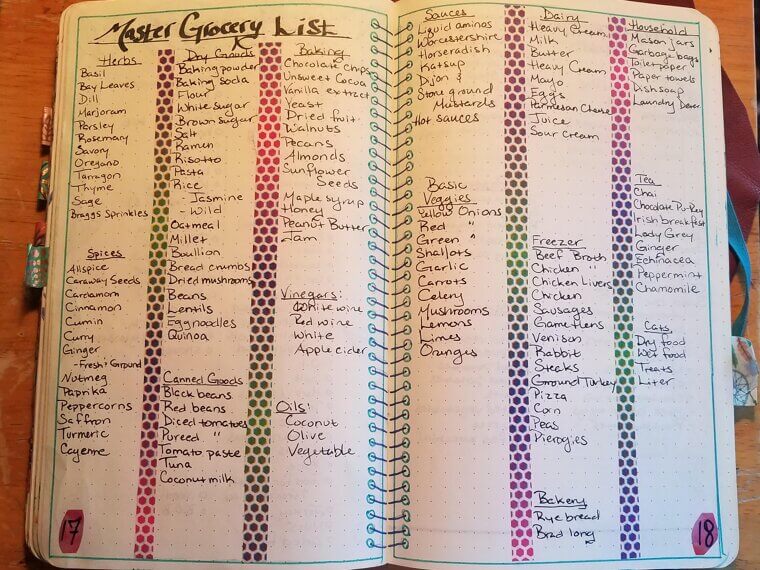 Master Grocery List
Herbs
Basil
Bay Leaves
Dill
Marjoram
Parsley
Rosemary
Savory
Oregano
Tarragon
Thyme
Sage
Braggs Sprinkles
Spices
Allspice
Caraway Seeds
Cardamom
Cinnamon
Cumin
Curry
Ginger
- Fresh & Ground
Nutmeg
Paprika
Peppercorns
Saffron
Turmeric
Cayenne
17
Dry Goods
Baking powder
Baking soda
Flour
White sugar
Brown sugar
Salt
Ramen
Risotto
Pasta
Rice
- Jasmine
- Wild
Oatmeal
Millet
Boullion
Bread crumbs
Dried mushrooms
Beans
Lentils
Egg noodles
Quinoa
Canned Goods
Black beans
Red beans
Diced tomatoes
Pureed "
Tomato paste
Tuna
Coconut milk
Baking
Chocolate chips
Unsweet Cocoa
Vanilla extract
Yeast
Dried fruit
Walnuts
Pecans
Almonds
Sunflower
Seeds
Maple syrup
Honey
Peanut Butter
Jam
Vinegars:
White wine
Red wine
White
Apple cider
Oils:
Coconut
Olive
Vegetable
Sauces
Liquid aminos
Worcestershire
Horseradish
Katsup
Dijon &
Stone ground
Mustards
Hot sauces
Basic
Veggies
Yellow Onions
Red "
Green "
Shallots
Garlic
Carrots
Celery
Mushrooms
Lemons
Limes
Oranges
Dairy
Heavy Cream
Milk
Butter
Heavy Cream
Mayo
Eggs
Parmesan Cheese
Juice
Sour Cream
Freezer
Beef Broth
Chicken "
Chicken Livers
Chicken
Sausages
Game Hens
Venison
Rabbit
Steaks
Ground Turkey
Pizza
Corn
Peas
Pierogies
Bakery
Rye bread
Household
Mason jars
Garbage bags
Toilet paper
Paper towels
Dish soap
Laundry
Tea
Chai
Chocolate
Irish breakfast
Lady Grey
Ginger
Echinacea
Peppermint
Chamomile
Cats
Dry food
Wet food
Treats
Liter
18